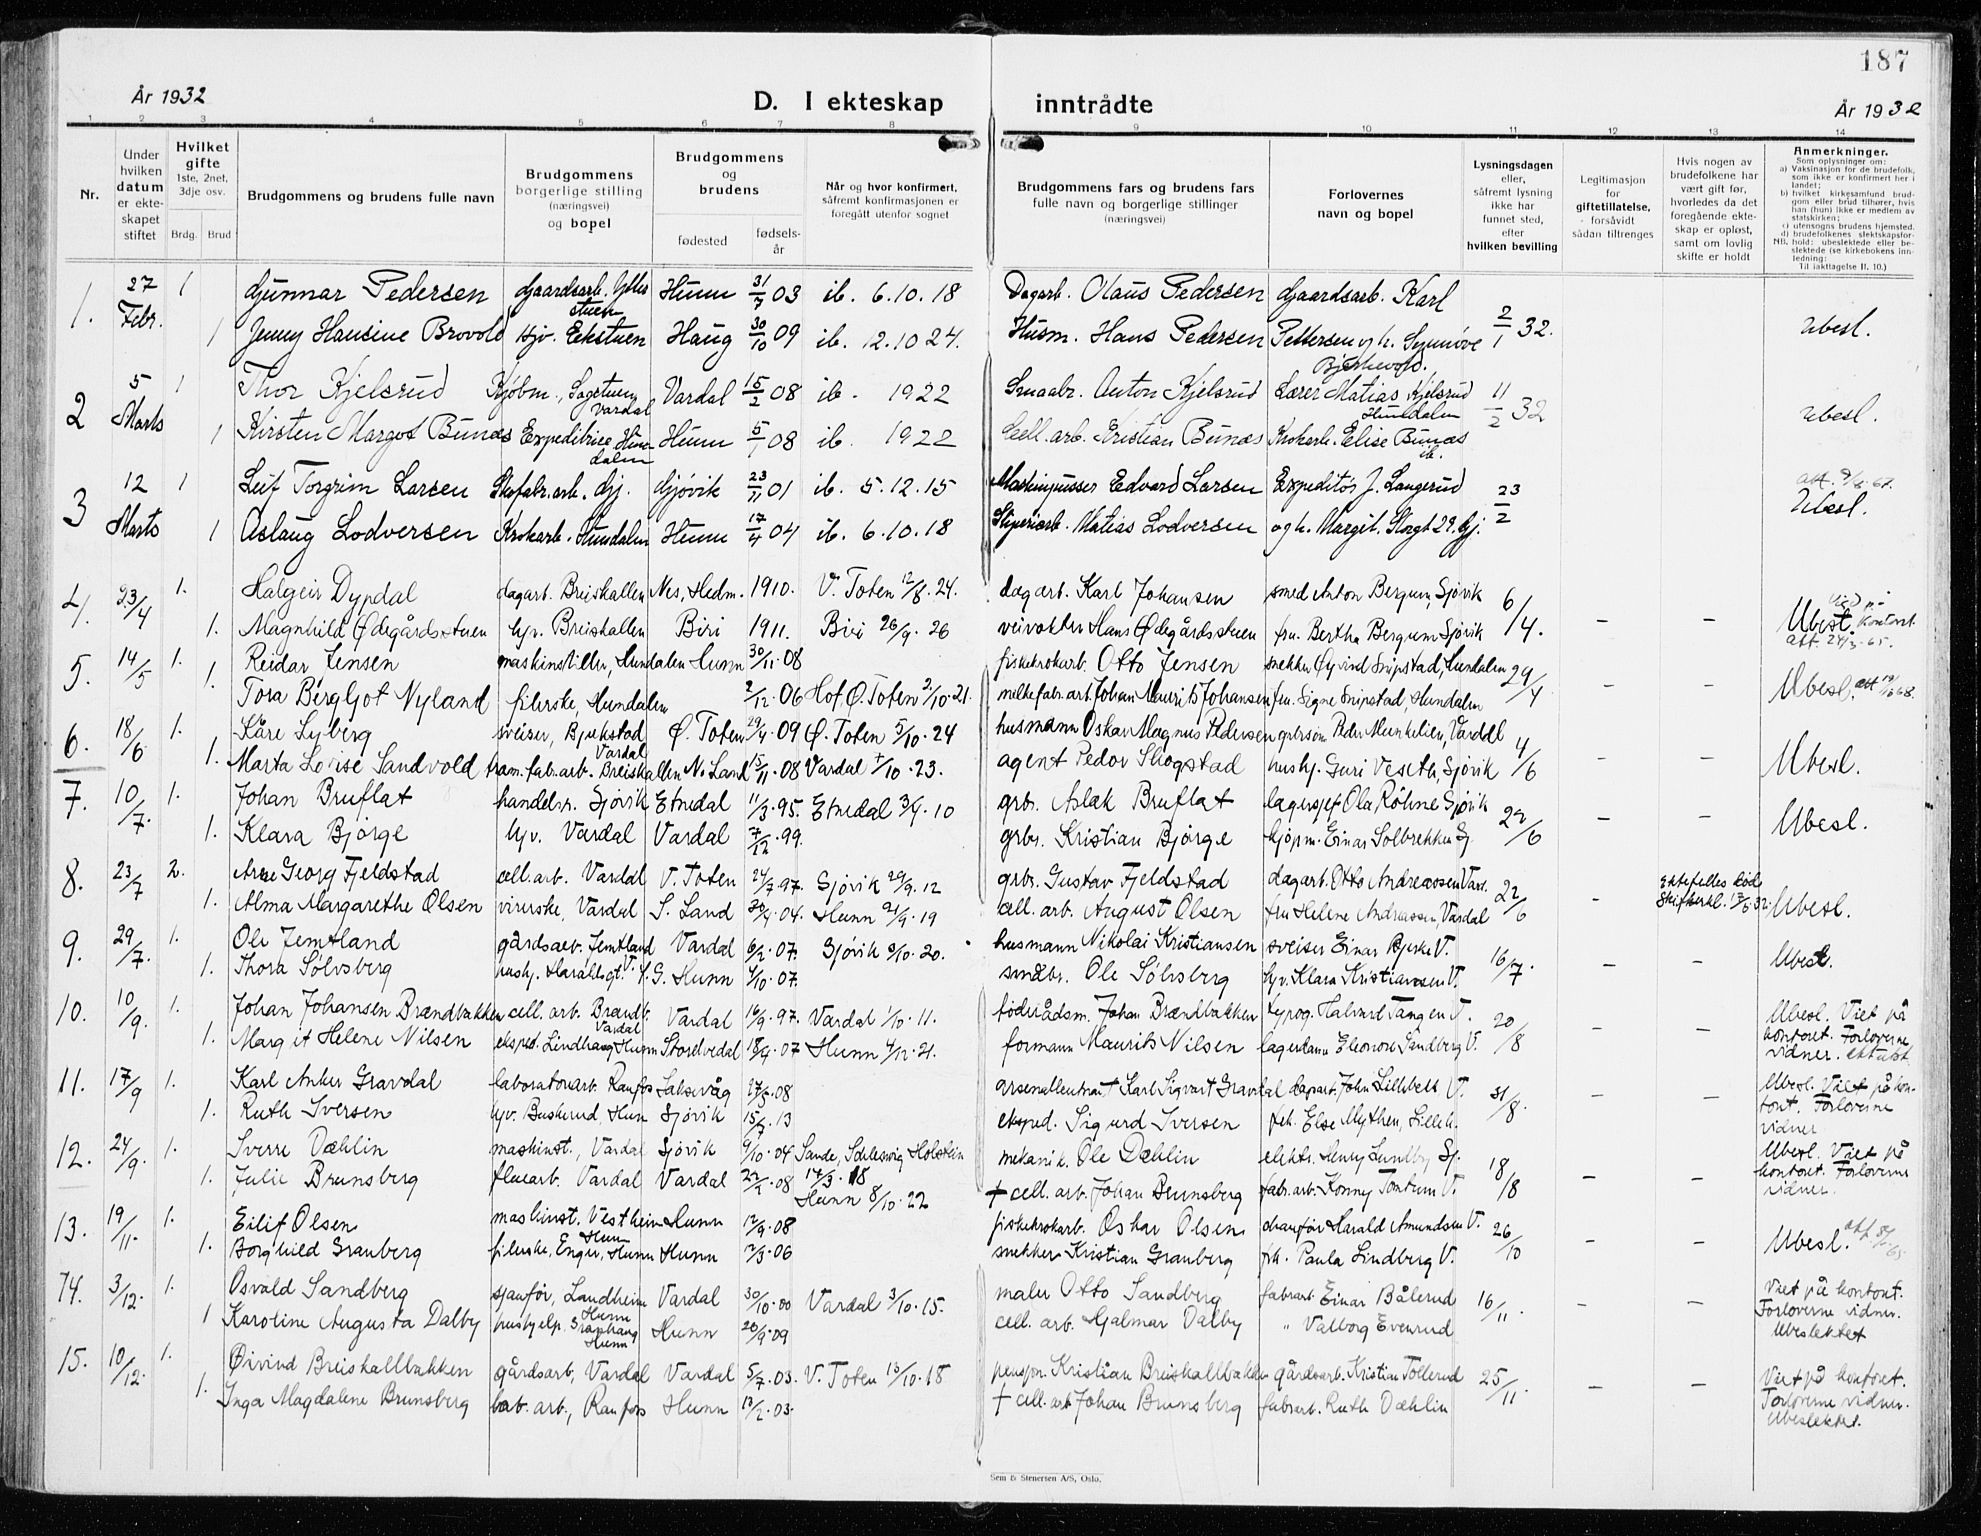 187
År 1932
D. I ekteskap inntrådte
År 1932
1 2 3 4 5 6 7 8 9 10 11 12 13 14
Nr.
Under hvilken datum er ekteskapet stiftet
Hvilket gifte 1ste, 2net, 3dje osv.
Brdg. Brud
Brudgommens og brudens fulle navn
Brudgommens borgerlige stilling (næringsvei) og bopel
Brudgommens og brudens
fødested
fødselsår
Når og hvor konfirmert, såfremt konfirmasjonen er foregått utenfor sognet
Brudgommens fars og brudens fars fulle navn og borgerlige stillinger (næringsvei)
Forlovernes navn og bopel
Lysningsdagen eller, såfremt lysning ikke har funnet sted, efter hvilken bevilling
Legitimasjon for giftetillatelse, forsåvidt sådan tiltrenges
Hvis nogen av brudefolkene har vært gift før, hvorledes da det foregående ekteskap er opløst, samt om lovlig skifte er holdt
Anmerkninger.
Som oplysninger om:
a) Vaksinasjon for de brudefolk, som ikke er konfirmert her i landet;
b) hvilket kirkesamfund brudgom eller brud tilhører, hvis han (hun) ikke er medlem av statskirken;
c) utensogns brudens hjemsted.
d) brudefolkenes slektskapsforhold: ubeslektede eller beslektede (se kirkebokens innledning:
NB. Til iakttagelse II. 10.)
1. 27 Febr. 1 Gunnar Pedersen Gaardsarb. Hunn 31/7 03 ib. 6.10.18 Dagarb. Olaus Pedersen Gaardsarb. Karl
1 Jenny Hansine Brovold Hjv. Ekstuen Haug 30/10 09 ib. 12.10 24. Husm. Hans Pedersen Pettersen og h. Synnøve 2/1 32. Ubesl.
2 5 Marts 1 Thor Kjelsrud Kjøbm., Vardal Vardal 15/2 08 ib. 1922 Smaabr. Anton Kjelsrud Lærer Matias Kjelsrud Hundalen 11/2 32 Ubesl.
1 Kirsten Margot Bunæs Expeditrice Hundalen Hunn 5/1 08 ib. 1922 Cell. arb. Kristian Bunæs Krokarb. Elise Bunæs ib.
3 12 Marts 1 Leif Torgrim Larsen Skofabr.arb. Gj. Gjøvik 23/11 01 ib. 5.12.15 Maskinpusser Edvard Larsen Expeditør J. Langerud 23/2 Ubesl.
1 Aslaug Lodversen Krokarb. Hundalen Hunn 17/4 04 ib. 6.10.18 Matias Lodversen og h. Margit. Storgt 29. Gj.
4. 23/4 1. Halgeir Dypdal dagarb. Breiskallen Nes, Hedm. 1910. V. Toten 12/8.24. dagarb. Karl Johansen smed Anton Bergum, Gjøvik 6/4. – – Ubesl. Vied på kontoret
1. Magnhild Ødegårdsstuen hjv. Breiskallen Biri 1911. Biri 26/9.26 veivokter Hans Ødegårdsstuen fru. Bertha Bergum Gjøvik att. 24/3.65.
5. 14/5 1. Reidar Jensen maskinstiller, Hundalen Hunn 30/11.08 fiskekrokarb. Otto Jensen snekker Øyvind Snipstad, Hundalen 29/4 – – Ubesl.
1. Tora Bergljot Nyland filerske, Hundalen 2/12.06 Hof, Ø. Toten 2/10.21. melkefabr.arb. Johan Maurits Johansen fru. Signe Snipstad, Hundalen
6. 18/6 1. Kåre Lyberg sveiser, Bjukstad Vardal Ø. Toten 29/4.09 Ø. Toten 5/10.24 husmann Oskar Magnus Pedersen grbr.søn Peder Munkelien, Vardal 4/6 – – Ubesl.
1. Marta Lovise Sandvold am. fab.arb. Breiskallen N. Land 15/11.08 Vardal 7/10.23. agent Peder Skogstad hushj. Guri Veseth, Gjøvik
7. 10/7. 1. Johan Bruflat handelsr. Gjøvik Etnedal 11/3.95. Etnedal 3/9.10 grbr. Aslak Bruflat lagersjef Ola Röhne Gjøvik 22/6 – – Ubesl.
1. Klara Bjørge hjv. Vardal Vardal 7/12.99. grbr. Kristian Bjørge kjøpm. Einar Solbrekken Gj.
8. 23/7 2. Arne Georg Fjeldstad cell. arb. Vardal V. Toten 24/7.97. Gjøvik 29/9.12 grbr. Gustav Fjeldstad dagarb. Otto Andreassen Vard. 22/6 – Ektefelles død Ubesl.
1. Alma Margarethe Olsen virerske, Vardal S. Land 20/4.04. Hunn 21/9.19 cell. arb. August Olsen fru Helene Andreassen, Vardal
9. 29/7. 1. Ole Jemtland gårdsarb. Jemtland V. Vardal 6/2.07. Gjøvik 8/10.20. husmann Nikolai Kristiansen sveiser Einar Bjerke V. 16/7. – – Ubesl.
1. Thora Sølvsberg hushj. Haraldsgt. G. Hunn 4/10.07. småbr. Ole Sølvsberg hjv. Klara Kristiansen V.
10. 10/9. 1. Johan Johansen Brændbakken cell. arb. Brændb. Vardal Vardal 16/9.97. Vardal 1/10.11. føderådsm. Johan Brændbakken typog. Halvard Tangen V. 20/8 – – Ubesl. Viet på kontoret. Forloverne vidner.
1. Margit Helene Nilsen eksped. Lindhaug Hunn Storelvedal 18/9.07 Hunn 4/12.21. formann Maurits Nilsen lagerdame Eleonore Sandberg V.
11. 17/9 1. Karl Anker Gravdal laboratoriearb. Raufoss Laksevåg 27/5.08 Karl Sigvart Gravdal dagarb. John Lillebekk V. 31/8. – – Ubesl. Viet på kontoret. Forloverne vidner
1. Ruth Iversen hjv. Buskerud, Hun Gjøvik 15/5.13 eksped. Sigurd Iversen frk. Else Mythen, Lilleh.
12. 24/9. 1. Sverre Dæhlin maskinst., Vardal Gjøvik 9/10.04 Sande, Schleswig Holstein 14/3.18 mekanik. Ole Dæhlin elektr. Henry Lundby Gj. 18/8 – – Ubesl. Viet på kontoret. Forloverne vidner.
1. Julie Brunsberg fluearb. Vardal Vardal 22/2.08 Hunn 8/10.22 † cell. arb. Johan Brunsberg fabr.arb. Konny Tomtum V.
13. 19/11. 1. Eilif Olsen maskinst. Vestheim Hunn Hunn 12/9.08 fiskekrokarb. Oskar Olsen chauffør Harald Amundsen V. 26/10 – – Ubesl.
1. Borghild Granberg filerske, Enger, Hunn Hunn 2/3.06 snekker Kristian Granberg frk. Paula Lindberg V.
14. 3/12. 1. Osvald Sandberg sjaufør, Landheim Hunn Vardal 30/10.00 Vardal 3/10.15. maler Otto Sandberg fabr.arb. Einar Bålerud 16/11. – – Viet på kontoret. Forloverne vidner. Ubeslektet
1 Karoline Augusta Dalby hushjelp. Granhaug Hunn Hunn 20/9.09 cell. arb. Hjalmar Dalby " Valborg Evenrud
15. 10/12. 1. Øivind Breiskallbakken gårdsarb, Vardal Vardal 5/7.03. V. Toten 13/10.18 pensjon. Kristian Breiskallbakken gårdsarb. Kristian Tollerud 25/11. – – Viet på kontoret. Forloverne vidner. Ubeslektet.
1. Inga Magdalene Brunsberg lab. arb., Raufoss Hunn 13/2.03. † cell. arb Johan Brunsberg fabr.arb. Ruth Dæhlin
Sem & Stenersen A/S, Oslo.